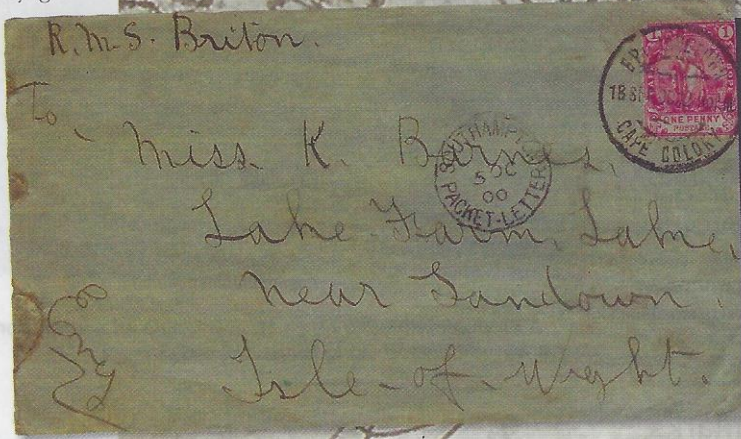 R.M.S. Briton.
To,
Miss. K. Barnes,
Lake Farm, Lake,
near Sandown.
Isle-of-Wight.
Eng
SOUTHAMPTON
5 OC
00
PACKET-LETTER
18 SE
CAPE COLONY
1
ONE PENNY